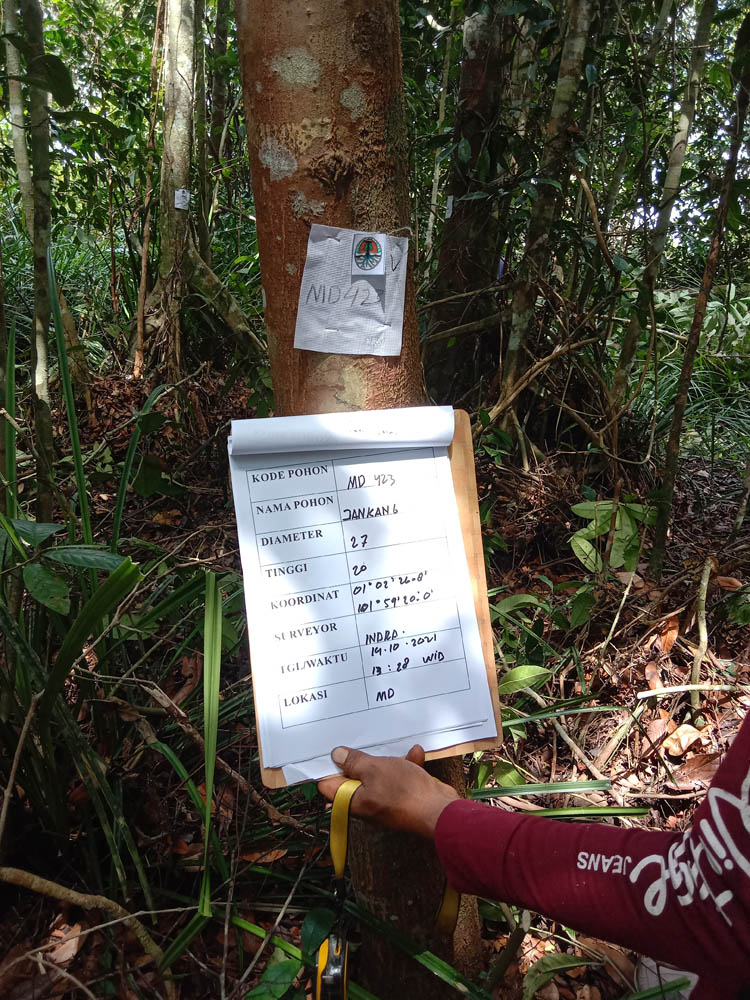 MD 423
KODE POHON MD 423
NAMA POHON JANKANG
DIAMETER 27
TINGGI 20
KOORDINAT 01° 02' 26.8'
101° 59' 20.0'
SURVEYOR INDRA.
TGL/WAKTU 19.10.2021
13:28 WIB
LOKASI MD
JEANS